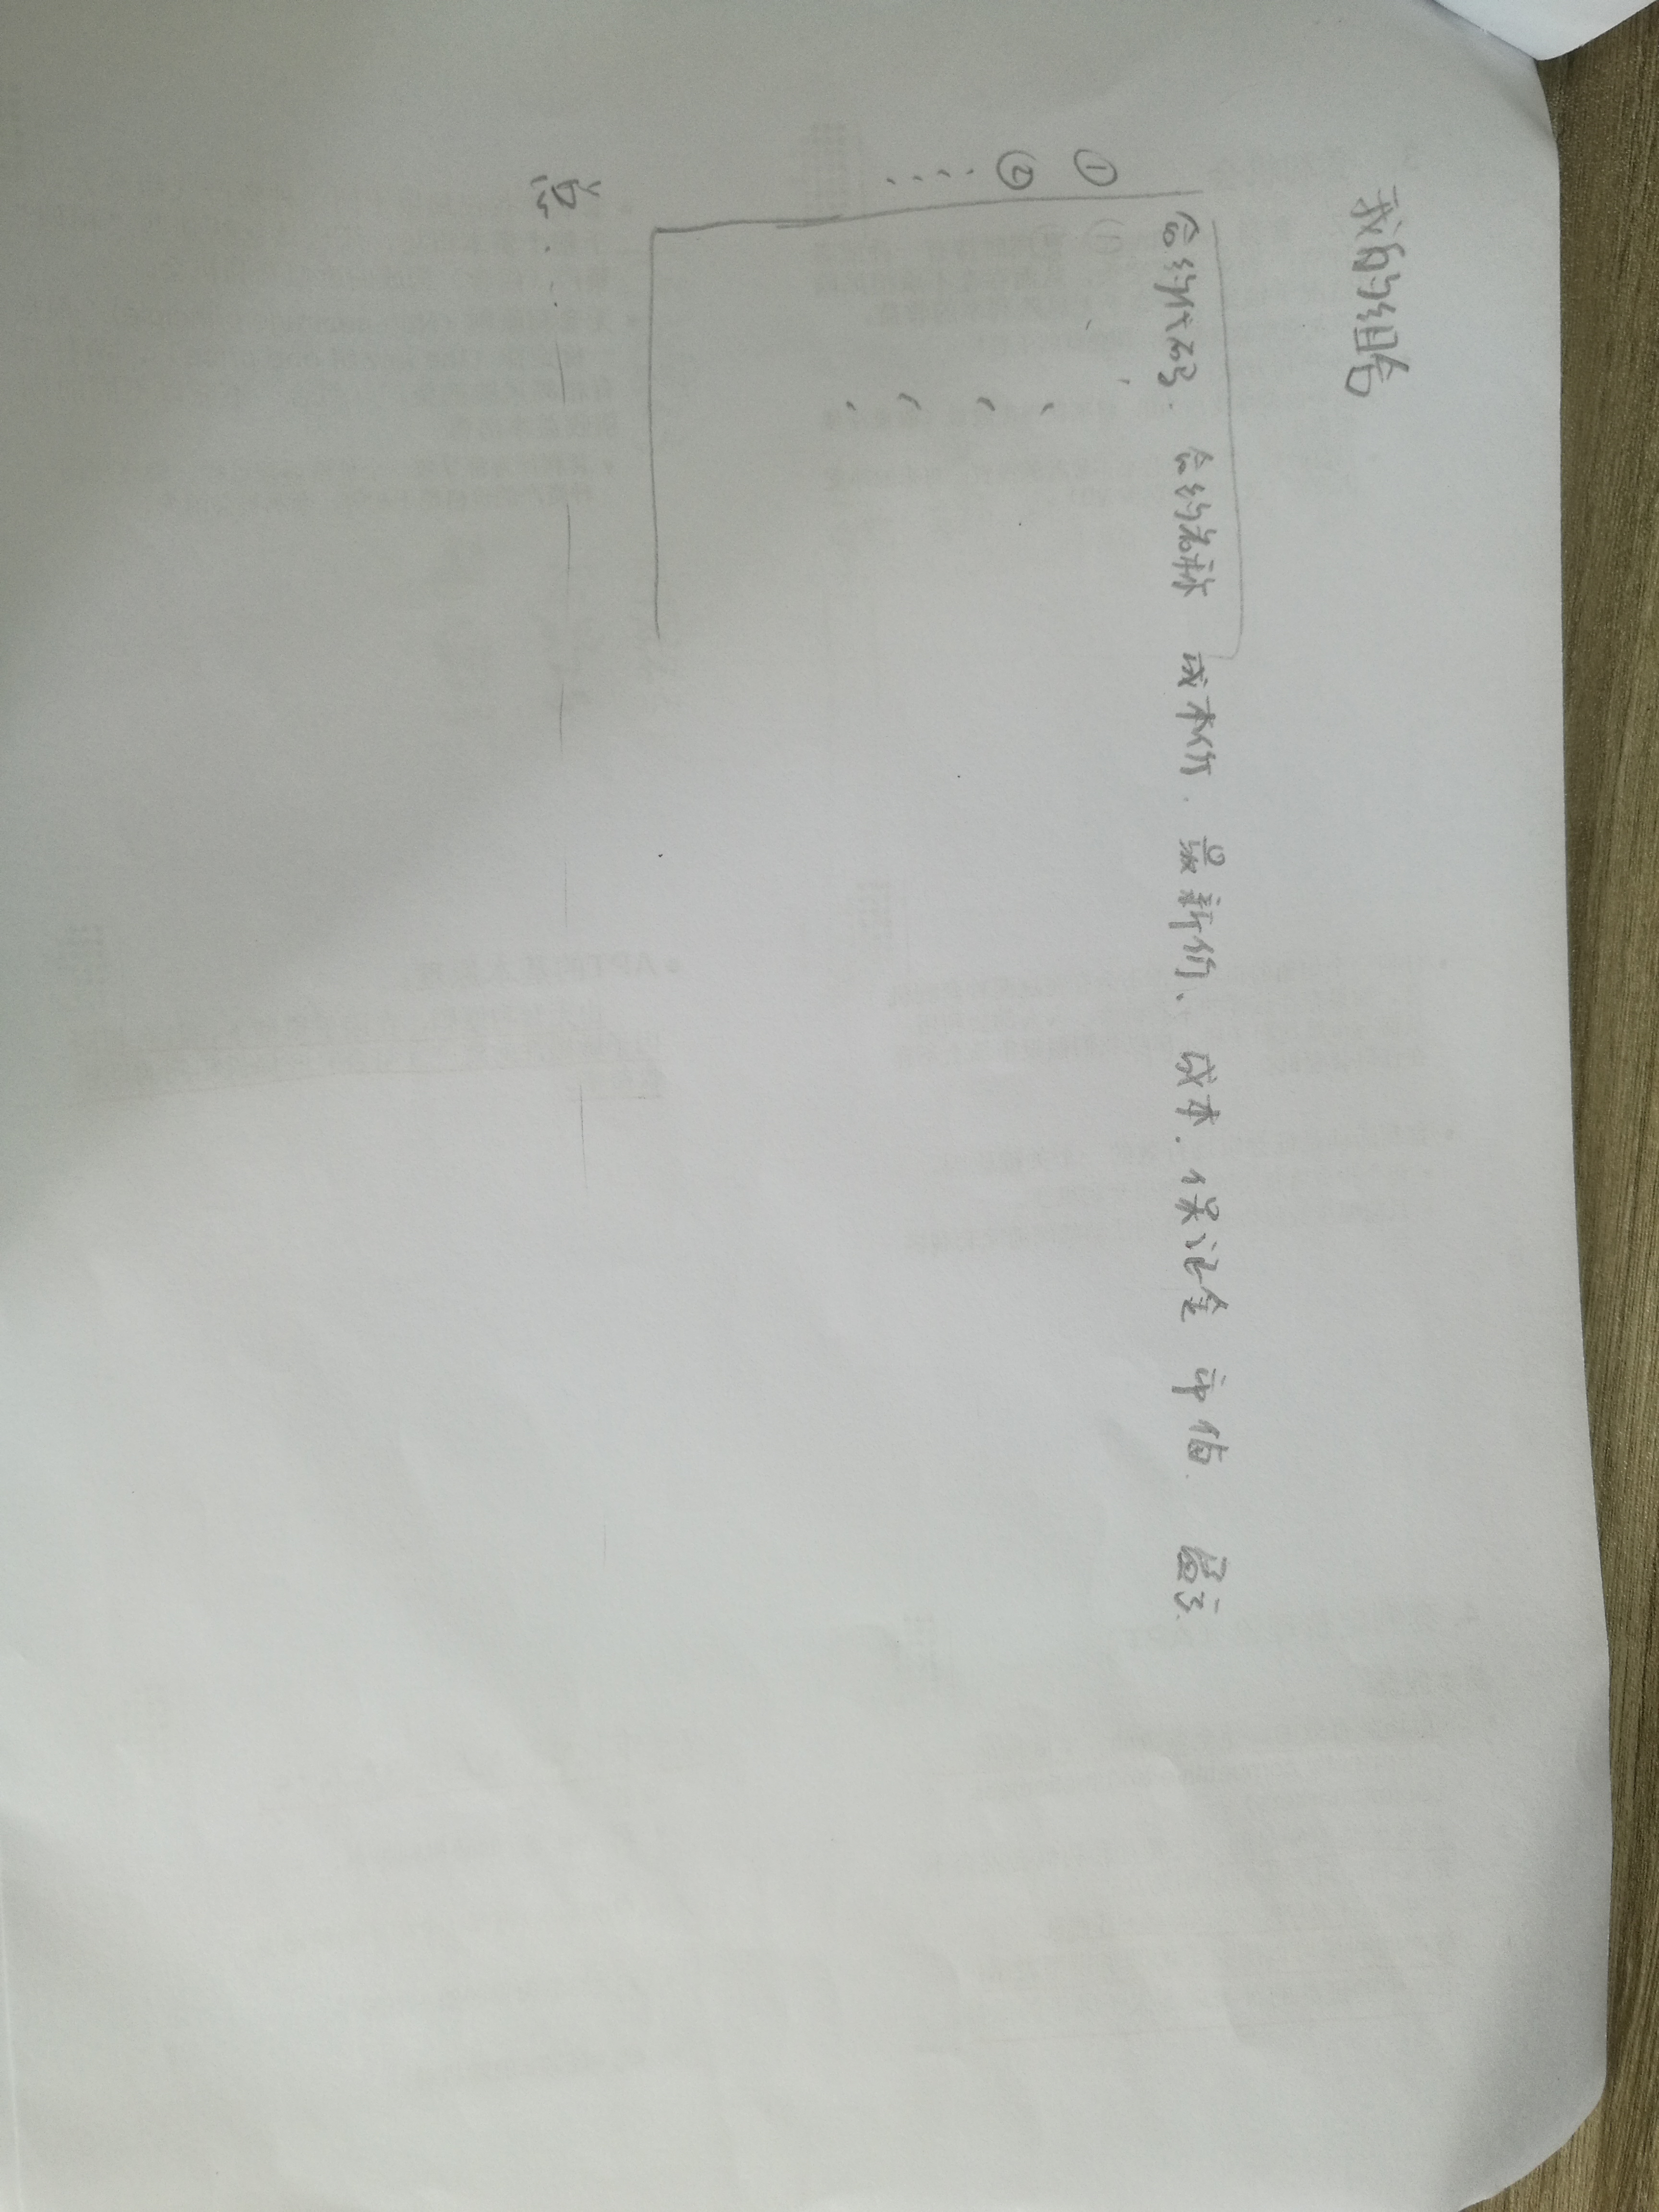 我的组合
合约代码. 合约名称 成本价. 最新价、 成本. 保证金 市值. 盈亏.
①
②
总. ...